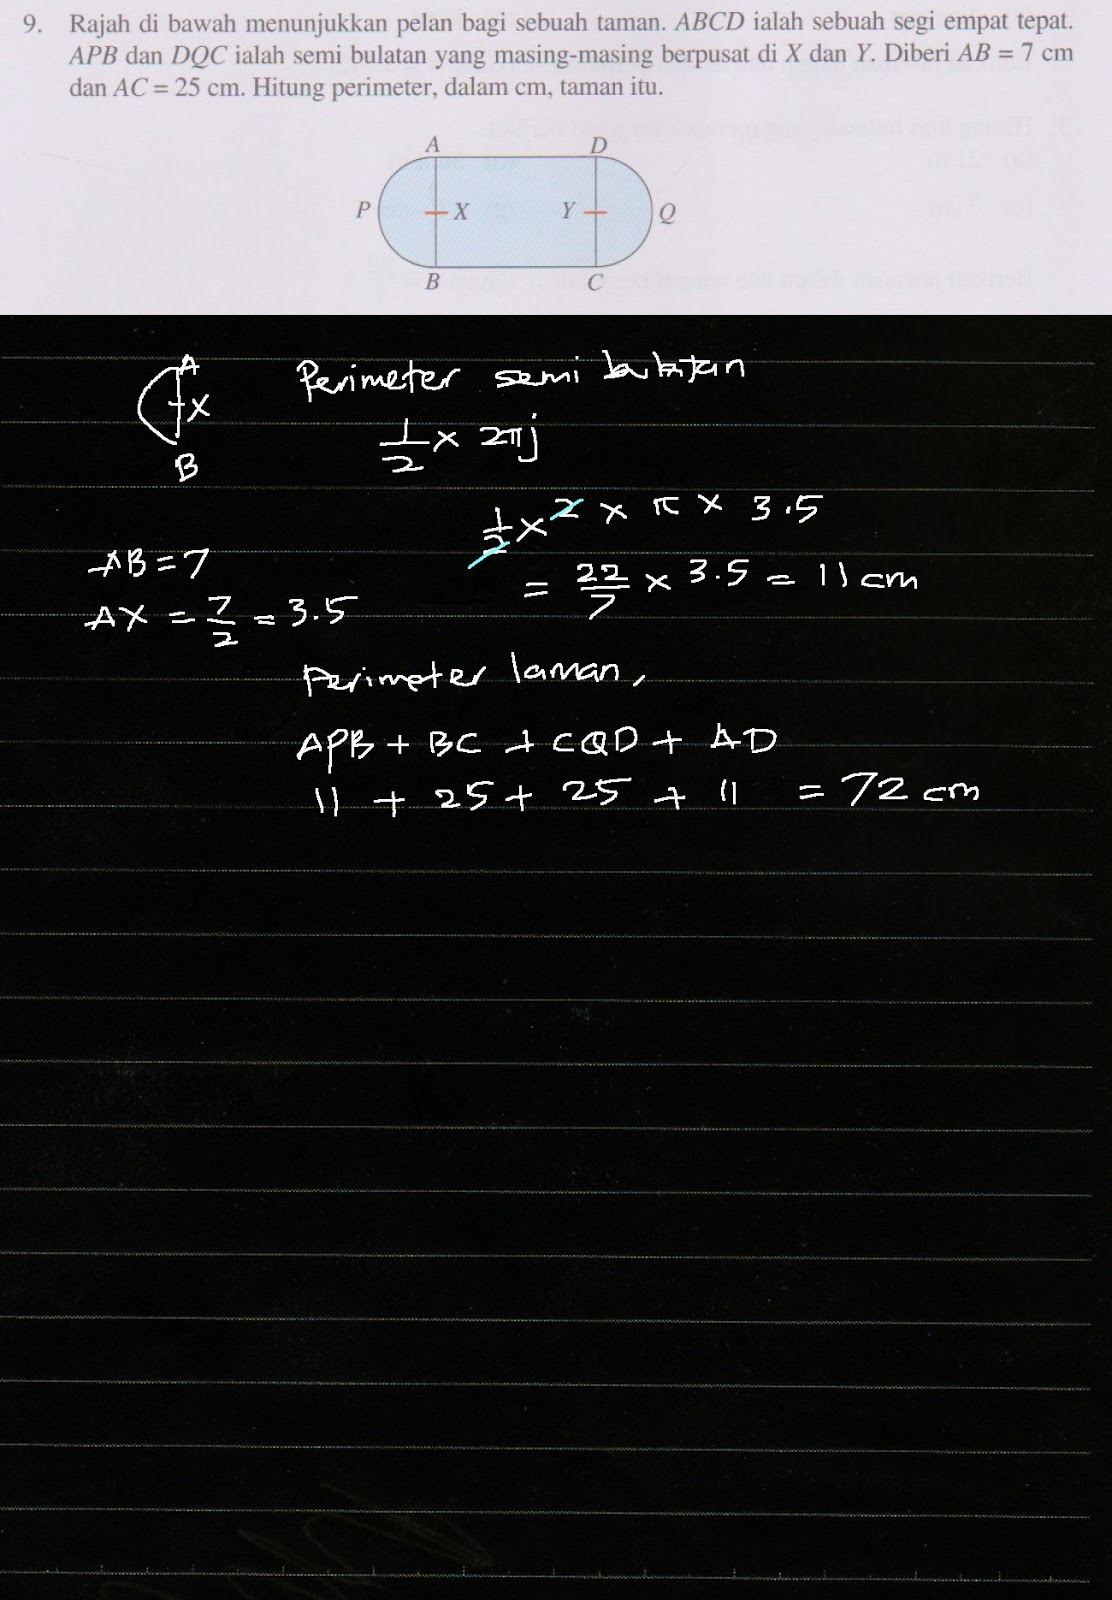 9. Rajah di bawah menunjukkan pelan bagi sebuah taman. ABCD ialah sebuah segi empat tepat.
APB dan DQC ialah semi bulatan yang masing-masing berpusat di X dan Y. Diberi AB = 7 cm
dan AC = 25 cm. Hitung perimeter, dalam cm, taman itu.
A D
P X Y Q
B C
A
X
B
Perimeter semi bulatan
1/2 × 2πj
1/2 × 2 × π × 3.5
AB = 7
= 22/7 × 3.5 = 11 cm
AX = 7/2 = 3.5
Perimeter laman,
APB + BC + CQD + AD
11 + 25 + 25 + 11 = 72 cm